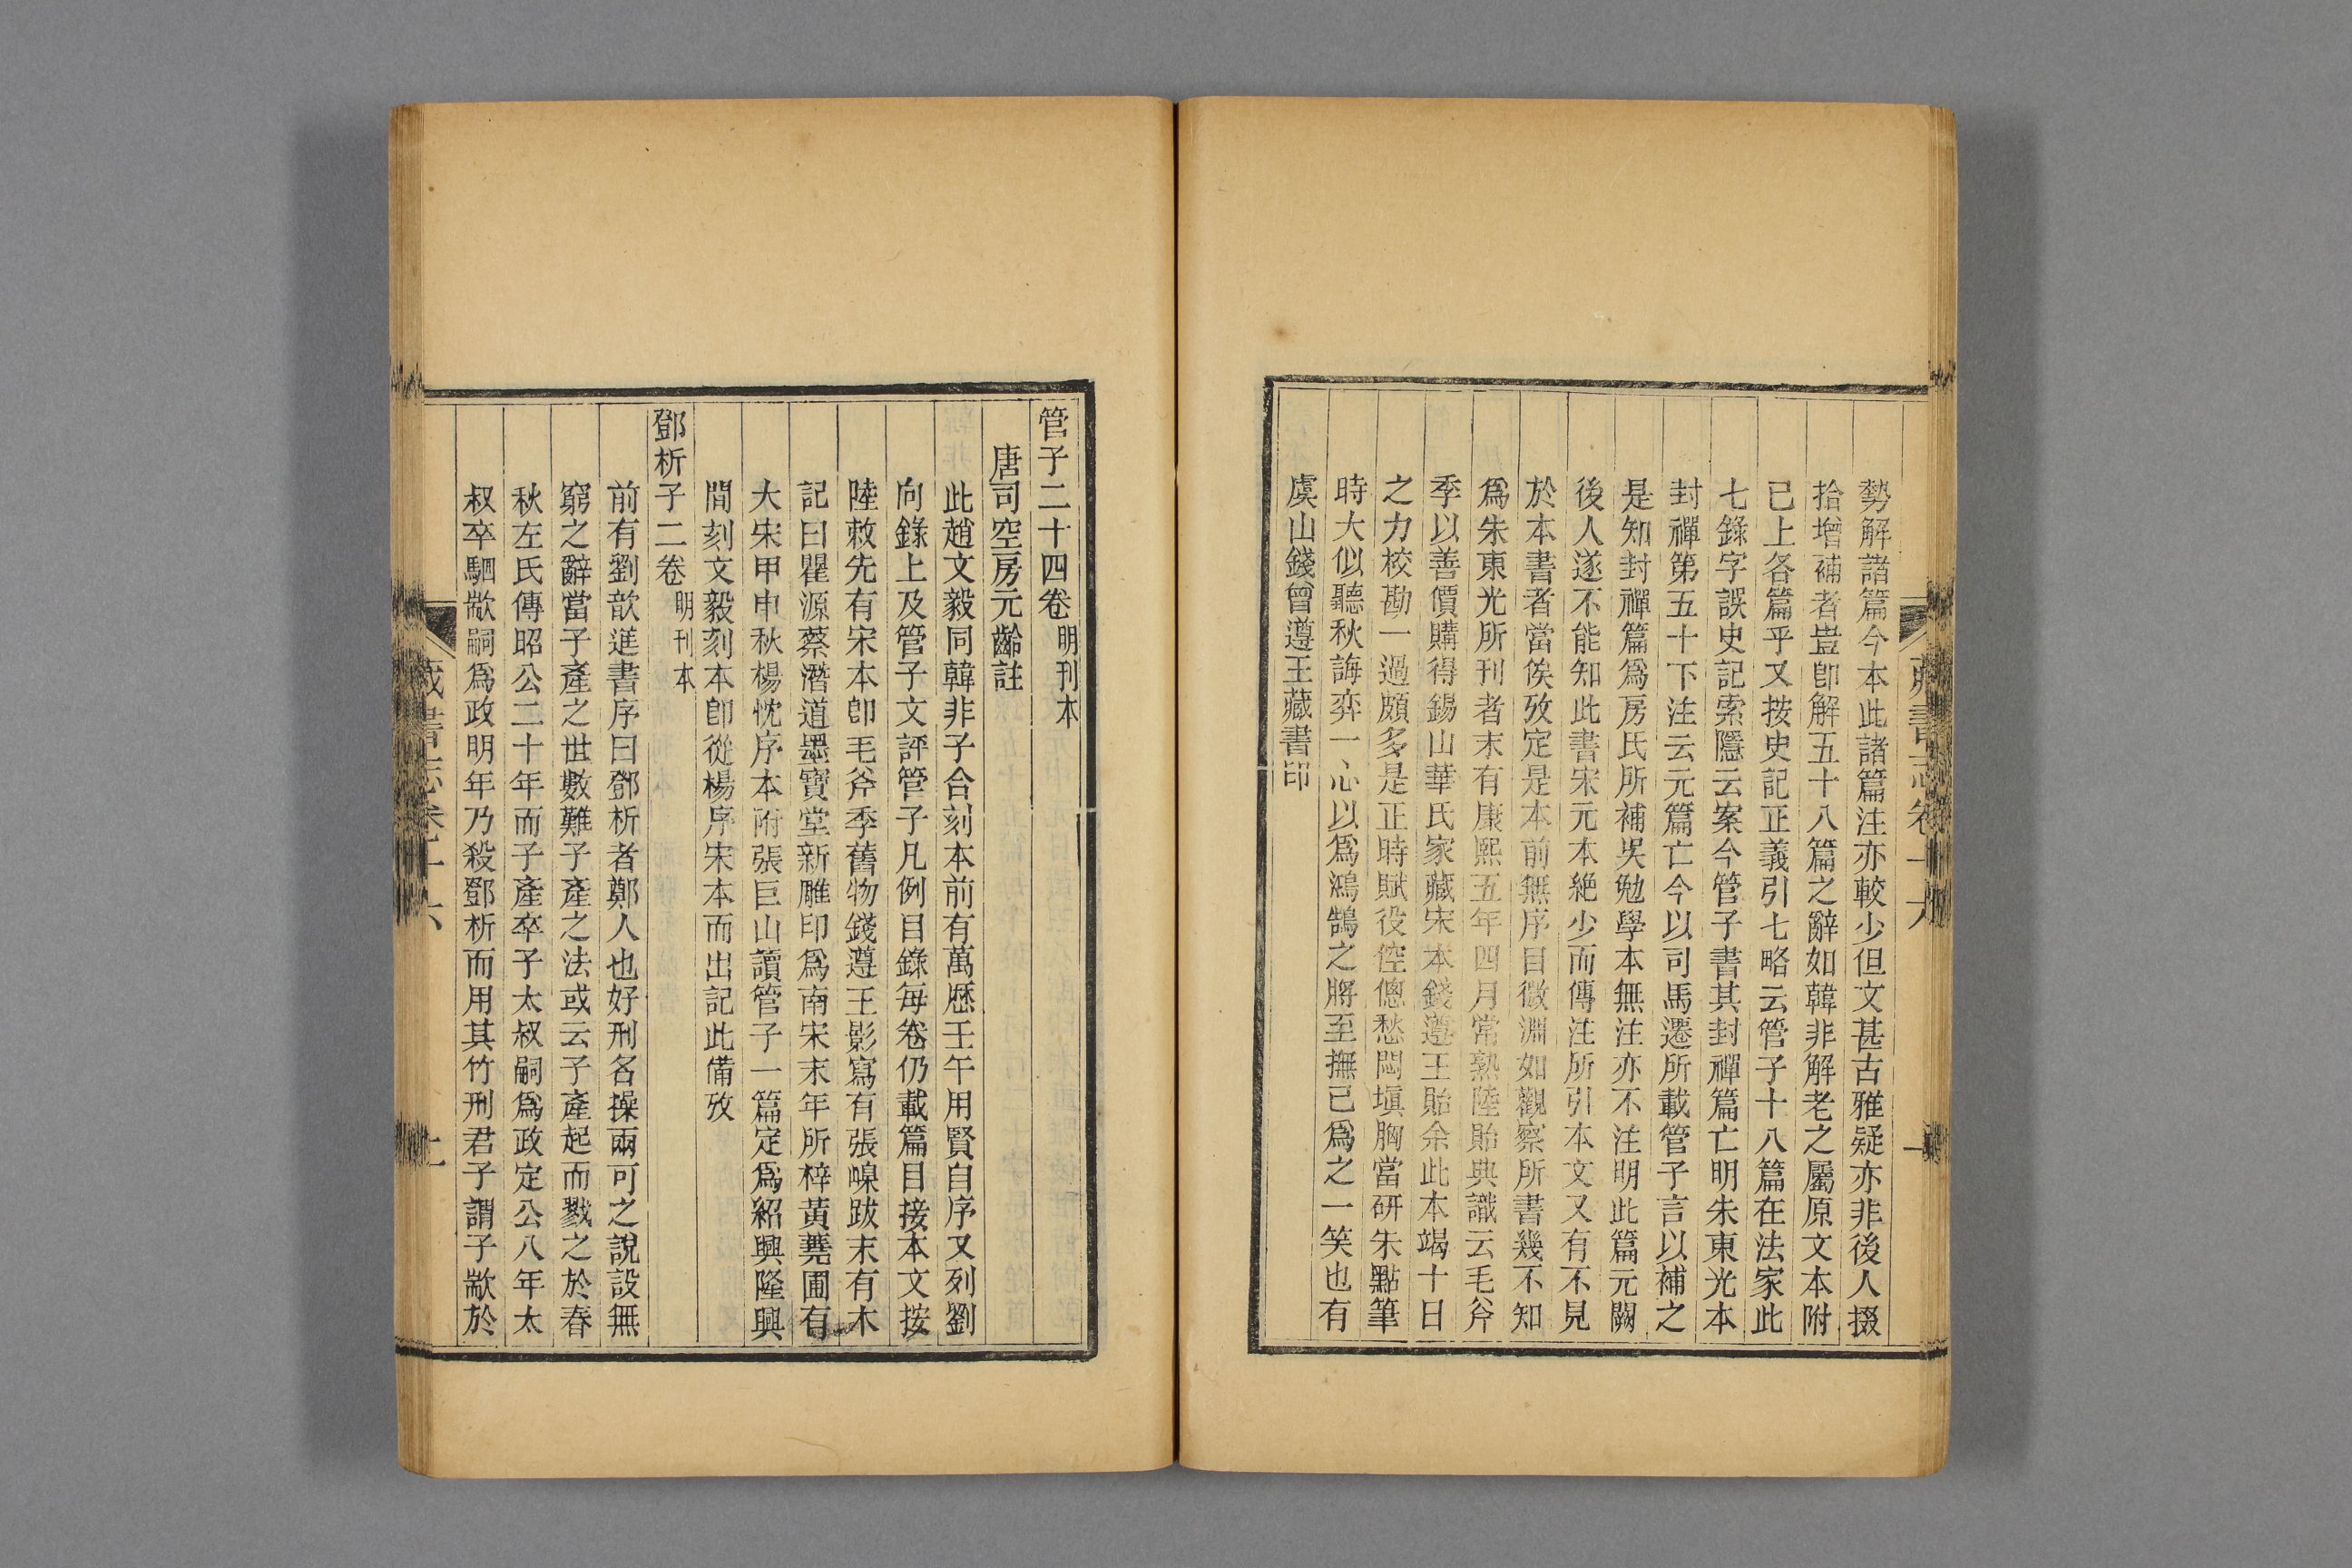 勢解諸篇今本此諸篇注亦較少但文甚古雅疑亦非後人掇
拾增補者豈卽解五十八篇之辭如韓非解老之屬原文本附
已上各篇乎又按史記正義引七略云管子十八篇在法家此
七錄字誤史記索隱云案今管子書其封禪篇亡明朱東光本
封禪第五十下注云元篇亡今以司馬遷所載管子言以補之
是知封禪篇爲房氏所補吳勉學本無注亦不注明此篇元闕
後人遂不能知此書宋元本絶少而傳注所引本文又有不見
於本書者當俟攷定是本前無序目微淵如觀察所書幾不知
爲朱東光所刊者末有康熙五年四月常熟陸貽典識云毛斧
季以善價購得錫山華氏家藏宋本錢遵王貽余此本竭十日
之力校勘一過頗多是正時賦役倥傯愁悶塡胸當研朱點筆
時大似聽秋誨弈一心以爲鴻鵠之將至撫已爲之一笑也有
虞山錢曾遵王藏書印
管子二十四卷 明刊本
唐司空房元齡註
此趙文毅同韓非子合刻本前有萬歷壬午用賢自序又列劉
向錄上及管子文評管子凡例目錄每卷仍載篇目接本文按
陸敕先有宋本卽毛斧季舊物錢遵王影寫有張嵲跋末有木
記曰瞿源蔡潛道墨寶堂新雕印爲南宋末年所梓黄蕘圃有
大宋甲申秋楊忱序本附張巨山讀管子一篇定爲紹興隆興
閒刻文毅刻本卽從楊序宋本而出記此備攷
鄧析子二卷 明刊本
前有劉歆進書序曰鄧析者鄭人也好刑名操兩可之說設無
窮之辭當子產之世數難子產之法或云子產起而戮之於春
秋左氏傳昭公二十年而子產卒子太叔嗣爲政定公八年太
叔卒駟歂嗣爲政明年乃殺鄧析而用其竹刑君子謂子歂於
藏書志卷十六